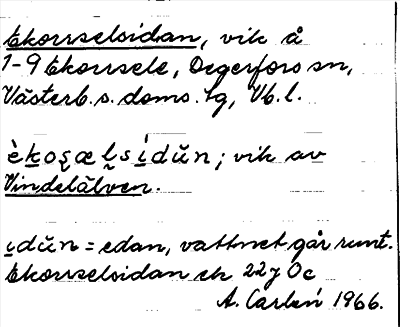 Ekorrselsidan, vik å
1-9 Ekorrsele, Degerfors sn,
Västerb. s. doms. lg, Vb. l.
èk̲oʂæl̥sídŭn; vik av
Vindelälven.
ıdŭn = edan, vattnet går runt.
Ekorrselsidan ek 22 J 0c
A. Carlén 1966.